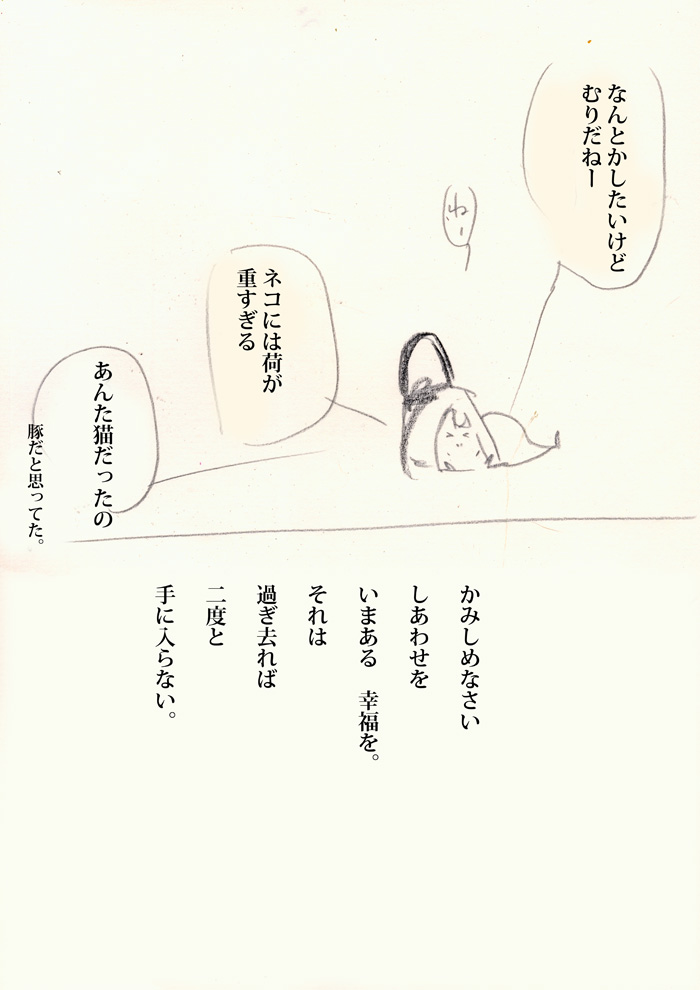 なんとかしたいけど
むりだねー
ねー
ネコには荷が
重すぎる
あんた猫だったの
豚だと思ってた。
かみしめなさい
しあわせを
いまある　幸福を。
それは
過ぎ去れば
二度と
手に入らない。